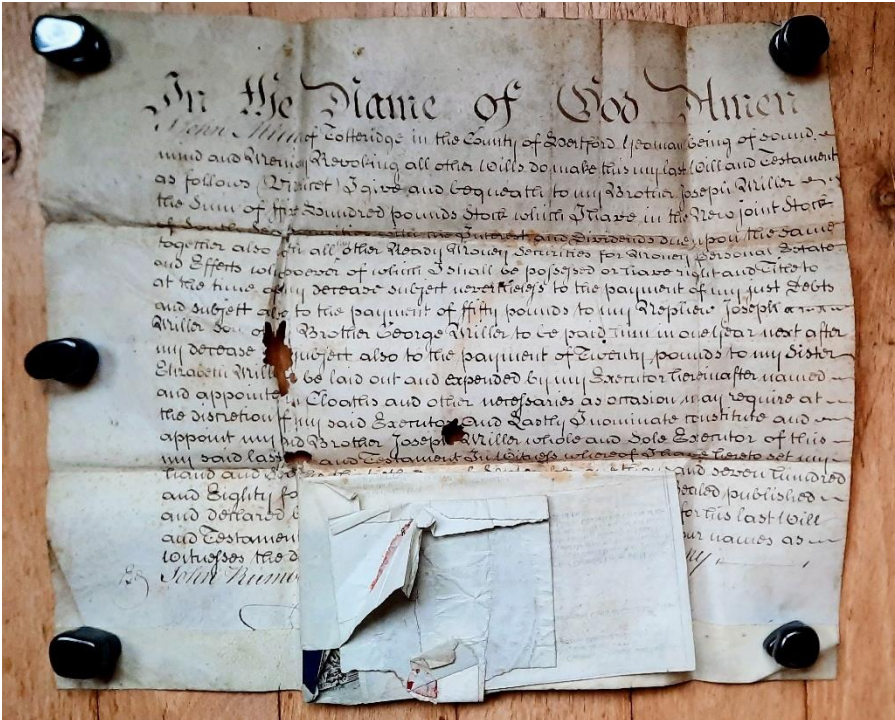 In the Name of God Amen
John of Totteridge in the County of Hertford Yeoman being of sound
mind and Revoking all other Wills do make this my last Will and Testament
as follows I give and bequeath to my Brother Joseph Miller
the Sum of five Hundred pounds Stock which I have in the New joint Stock
of South Sea Annuities with the Interest and Dividends due upon the same
together also all other Ready Money Securities for Money Personal Estate
and Effects of which I shall be possessed or have right and Title to
at the time my decease subject nevertheless to the payment of my just Debts
and subject also to the payment of ffifty pounds to my Nephew Joseph
Miller son of Brother George Miller to be paid him in one year next after
my decease subject also to the payment of Twenty pounds to my Sister
Elizabeth be laid out and expended by my Executor hereinafter named
and appointed Cloaths and other necessaries as occasion may require at
the discretion of my said Executor And Lastly I nominate constitute and
appoint my Brother Joseph Miller whole and Sole Executor of this
my said last and Testament In Witness whereof I have hereto set my
hand and and seven hundred
and Eighty Sealed published
and declared for his last Will
and Testament our names as
Witnesses the
John